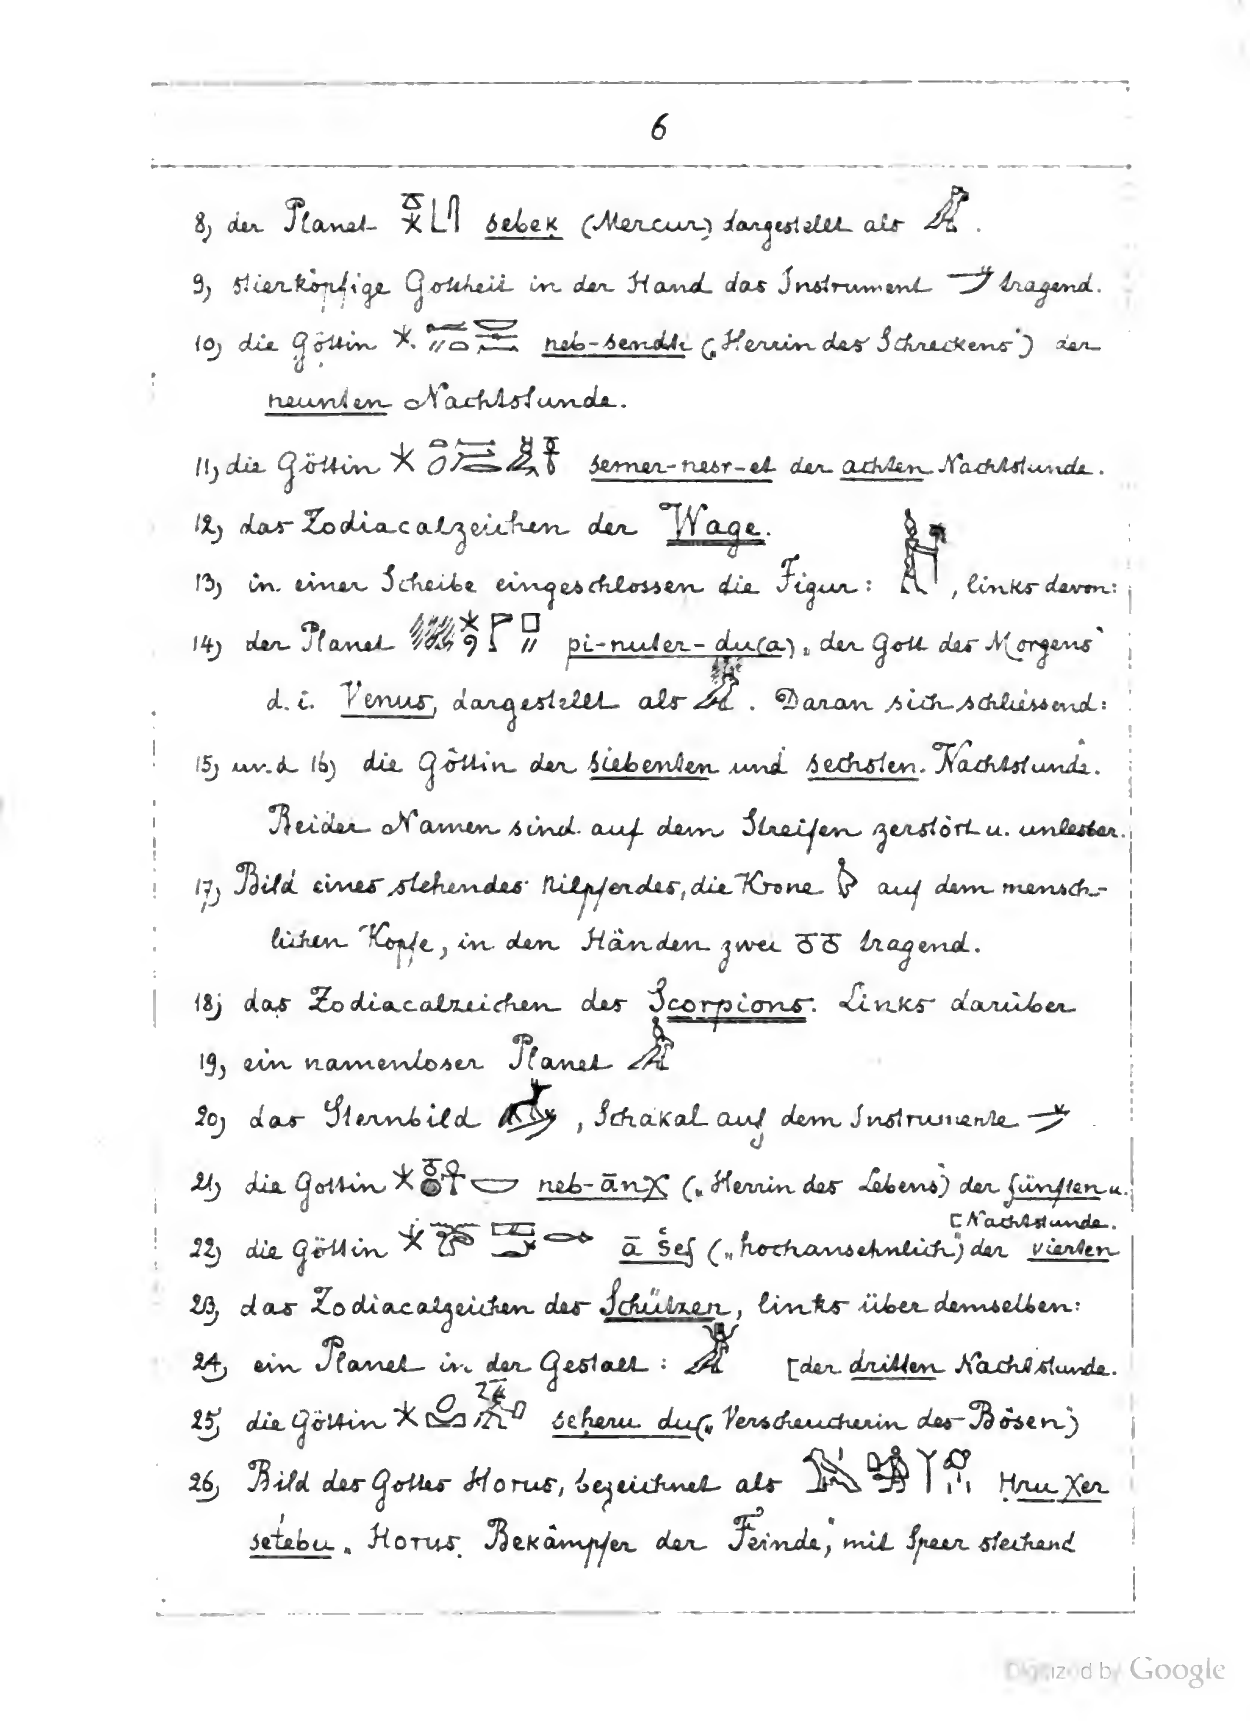 6
8) der Planet sebek (Mercur) dargestellt als .
9) stierköpfige Gottheit in der Hand das Instrument tragend.
10) die Göttin neb-sendt („Herrin des Schreckens“) der
neunten Nachtstunde.
11) die Göttin semer-nesr-et der achten Nachtstunde.
12) das Zodiacalzeichen der Wage.
13) in einer Scheibe eingeschlossen die Figur: , links davon:
14) der Planet pi-nuter-du(a) „der Gott des Morgens“
d. i. Venus, dargestellt als . Daran sich schliessend:
15) und 16) die Göttin der siebenten und sechsten Nachtstunde.
Beider Namen sind auf dem Streifen zerstört u. unlesbar.
17) Bild eines stehendes Nilpferdes, die Krone auf dem mensch-
lichen Kopfe, in den Händen zwei tragend.
18) das Zodiacalzeichen des Scorpions. Links darüber
19) ein namenloser Planet
20) das Sternbild , Schakal auf dem Instrumente
21) die Göttin neb-ānχ („Herrin des Lebens“) der fünften u.
[Nachtstunde.
22) die Göttin ā šef („hochansehnlich“) der vierten
23) das Zodiacalzeichen des Schützen, links über demselben:
24) ein Planet in der Gestalt: [der dritten Nachtstunde.
25) die Göttin seheru du („Verscheucherin des Bösen“)
26) Bild des Gottes Horus, bezeichnet als Hru χer
setebu „Horus Bekämpfer der Feinde“, mit Speer stechend
Digitized by Google